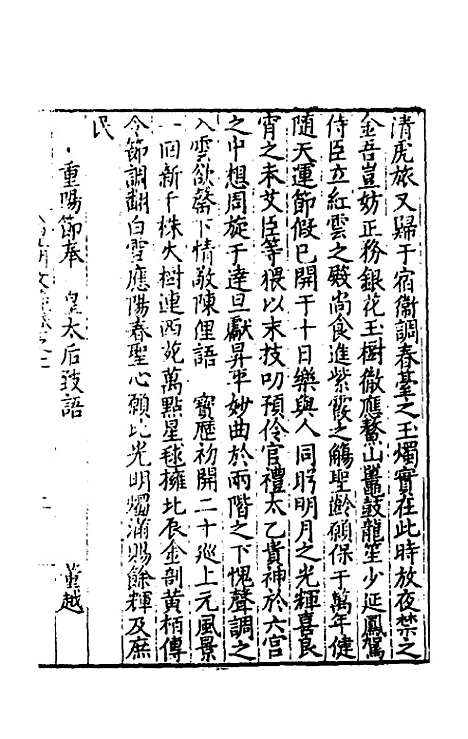 清虎旅又歸于宿衞調春臺之玉燭實在此時放夜禁之
金吾豈妨正務銀花玉樹徹應鰲山鼉鼓龍笙少延鳳駕
侍臣立紅雲之殿尚食進紫霞之觴聖齡願保于萬年健
隨天運節假已開于十日樂與人同盻明月之光輝喜良
宵之未艾臣等猥以末技叨預伶官禮太乙貴神於六宮
之中想周旋于達旦獻昇平妙曲於兩階之下愧聲調之
入雲欲罄下情敬陳俚語 寳歴初開二十廵上元風景
一囘新千株火樹連西苑萬點星毬擁北辰金剖黄柑傳
令節調翻白雪應陽春聖心願比光明燭滿賜餘輝及庶
民
重陽節奉 皇太后致語 董越
明文